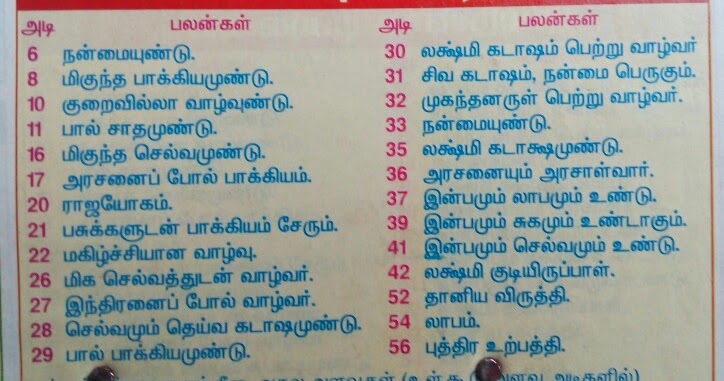 அடி பலன்கள்
6 நன்மையுண்டு.
8 மிகுந்த பாக்கியமுண்டு.
10 குறைவில்லா வாழ்வுண்டு.
11 பால் சாதமுண்டு.
16 மிகுந்த செல்வமுண்டு.
17 அரசனைப் போல் பாக்கியம்.
20 ராஜயோகம்.
21 பசுக்களுடன் பாக்கியம் சேரும்.
22 மகிழ்ச்சியான வாழ்வு.
26 மிக செல்வத்துடன் வாழ்வர்.
27 இந்திரனைப் போல் வாழ்வர்.
28 செல்வமும் தெய்வ கடாஷமுண்டு.
29 பால் பாக்கியமுண்டு.
அடி பலன்கள்
30 லக்ஷ்மி கடாஷம் பெற்று வாழ்வர்
31 சிவ கடாஷம், நன்மை பெருகும்.
32 முகந்தனருள் பெற்று வாழ்வர்.
33 நன்மையுண்டு.
35 லக்ஷ்மி கடாக்ஷமுண்டு.
36 அரசனையும் அரசாள்வார்.
37 இன்பமும் லாபமும் உண்டு.
39 இன்பமும் சுகமும் உண்டாகும்.
41 இன்பமும் செல்வமும் உண்டு.
42 லக்ஷ்மி குடியிருப்பாள்.
52 தானிய விருத்தி.
54 லாபம்.
56 புத்திர உற்பத்தி.